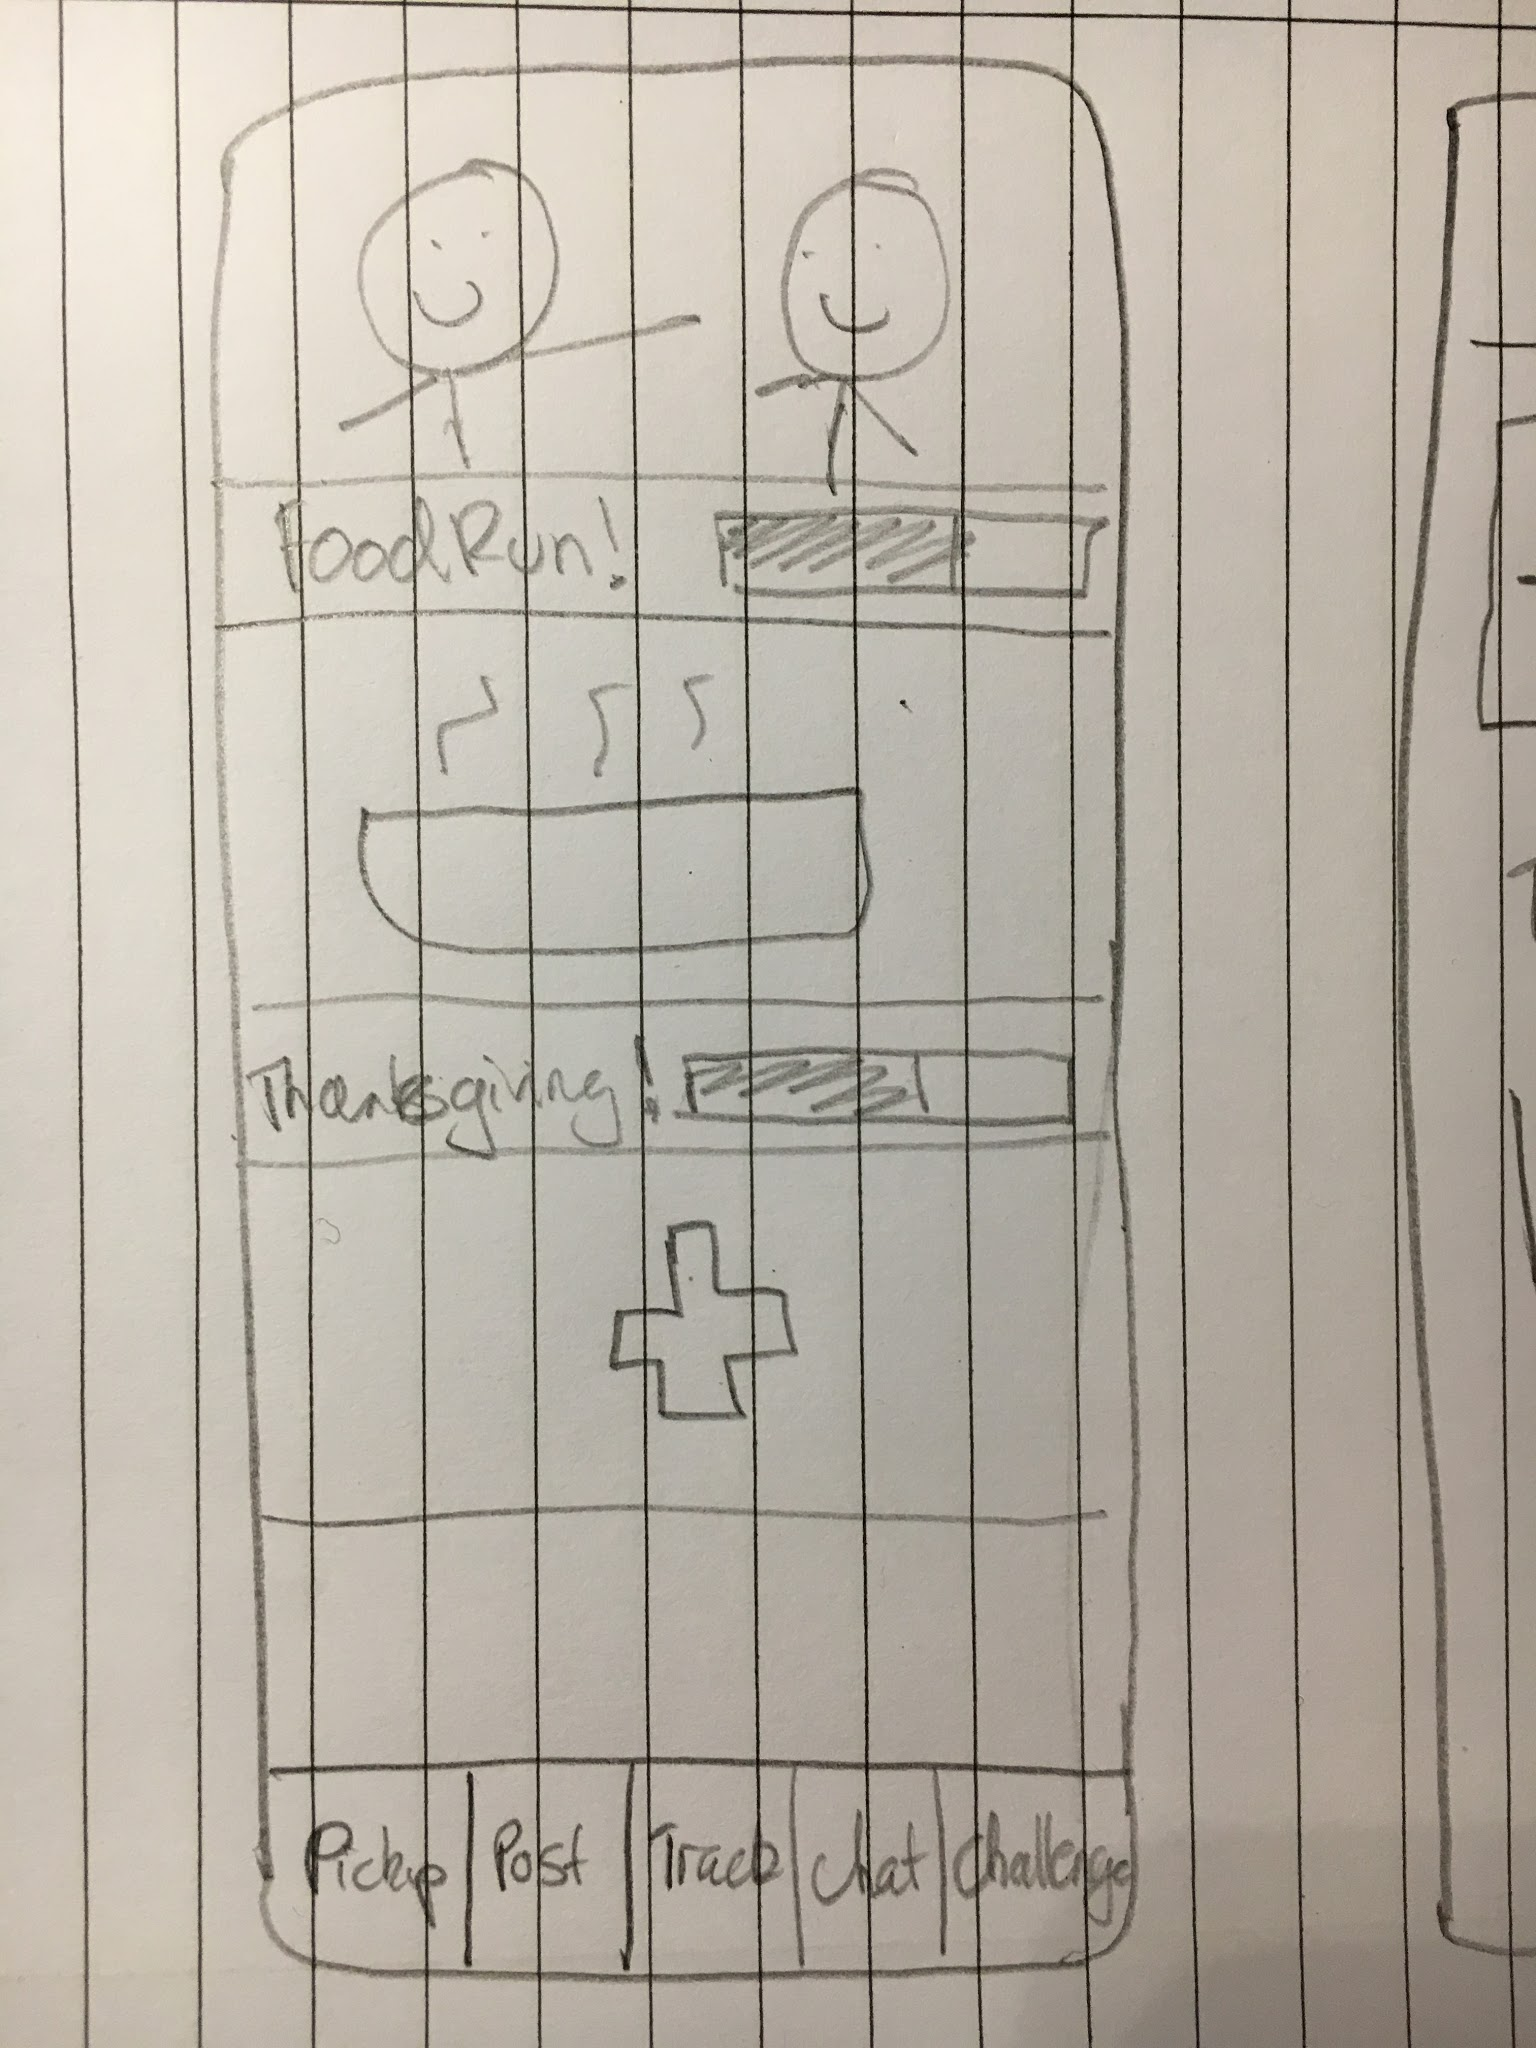 Food Run!
Thanksgiving!
Pickup Post Track Chat Challenge